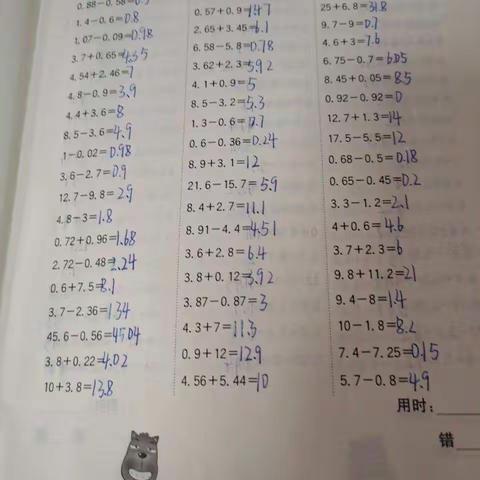 0.88-0.58=0.3
1.4-0.6=0.8
1.07-0.09=0.98
3.7+0.65=4.35
4.54+2.46=7
4.8-0.9=3.9
4.4+3.6=8
8.5-3.6=4.9
1-0.02=0.98
3.6-2.7=0.9
12.7-9.8=2.9
4.8-3=1.8
0.72+0.96=1.68
2.72-0.48=2.24
0.6+7.5=8.1
3.7-2.36=1.34
45.6-0.56=45.04
3.8+0.22=4.02
10+3.8=13.8
0.57+0.9=1.47
2.65+3.45=6.1
6.58-5.8=0.78
3.62+2.3=5.92
4.1+0.9=5
8.5-3.2=5.3
1.3-0.6=0.7
0.6-0.36=0.24
8.9+3.1=12
21.6-15.7=5.9
8.4+2.7=11.1
8.91-4.4=4.51
3.6+2.8=6.4
3.8+0.12=3.92
3.87-0.87=3
4.3+7=11.3
0.9+12=12.9
4.56+5.44=10
25+6.8=31.8
9.7-9=0.7
4.6+3=7.6
6.75-0.7=6.05
8.45+0.05=8.5
0.92-0.92=0
12.7+1.3=14
17.5-5.5=12
0.68-0.5=0.18
0.65-0.45=0.2
3.3-1.2=2.1
4+0.6=4.6
3.7+2.3=6
9.8+11.2=21
9.4-8=1.4
10-1.8=8.2
7.4-7.25=0.15
5.7-0.8=4.9
用时:
错